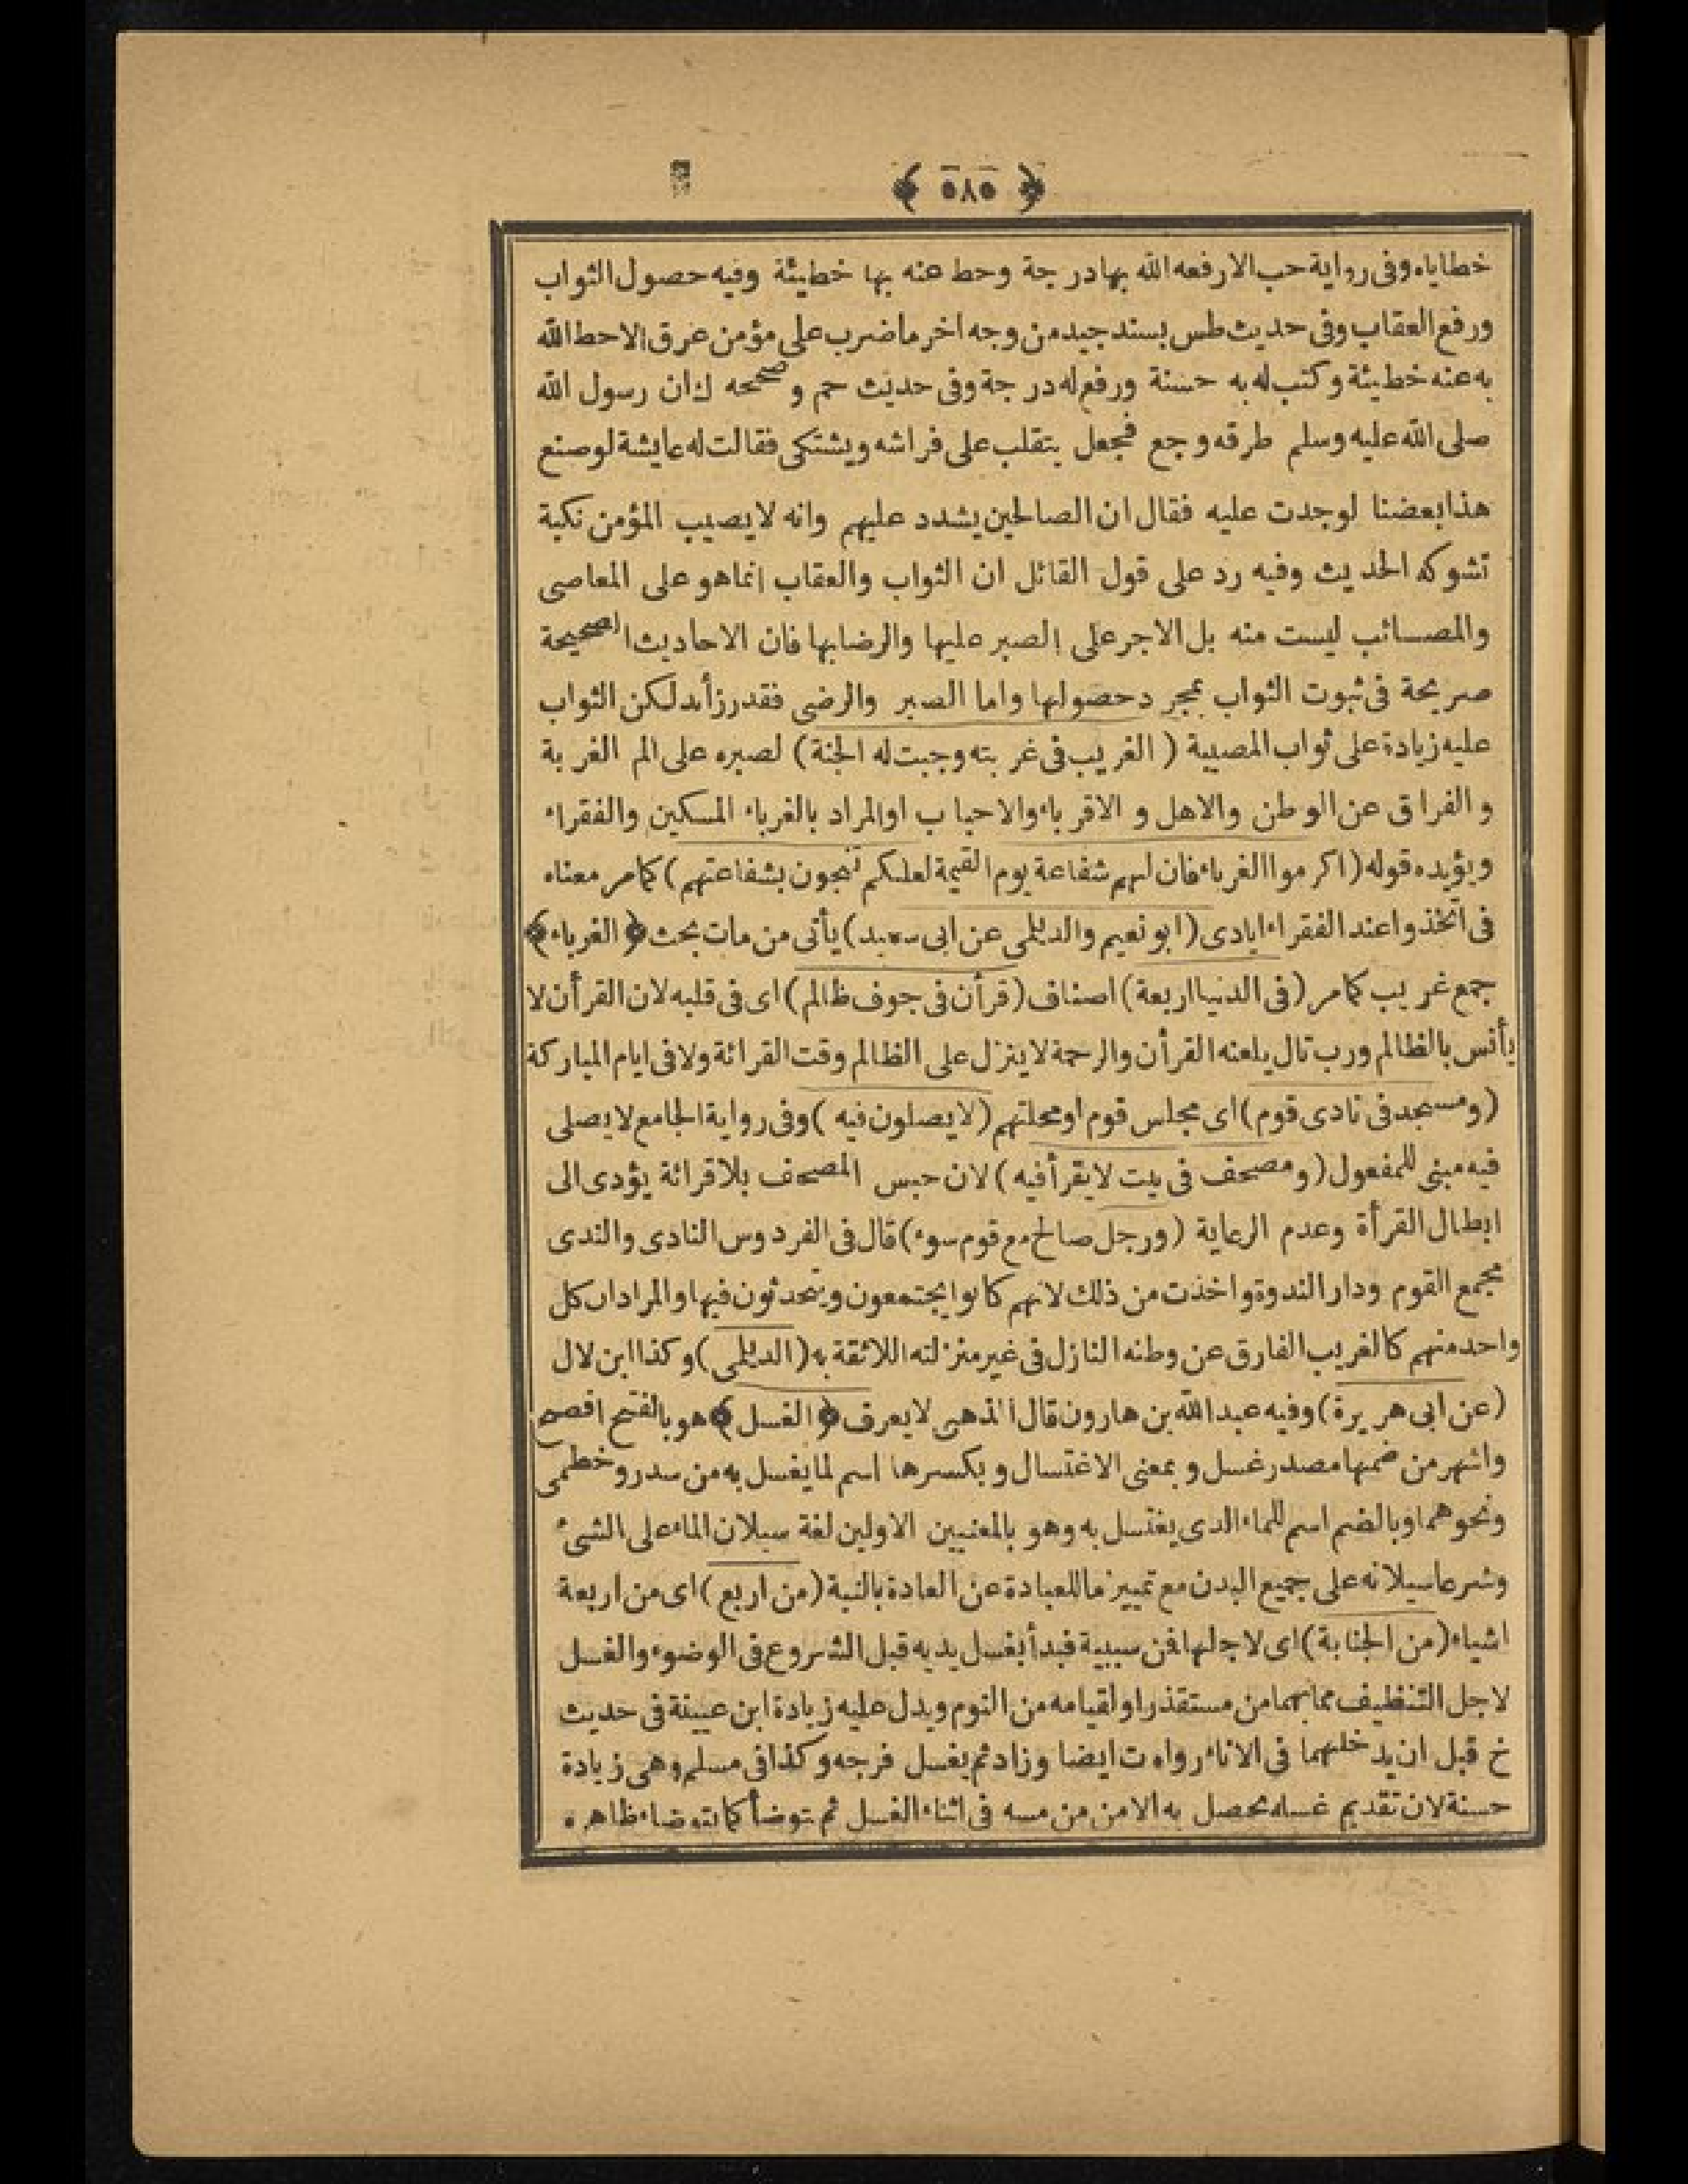 ﴿ ٥٨٥ ﴾
خطاياه وفى رواية حب الارفعه الله بها درجة وحط عنه بها خطيئة وفيه حصول الثواب
ورفع العقاب وفى حديث طس بسند جيد من وجه اخر ما ضرب على مؤمن عرق الاحط الله
به عنه خطيئة وكتب له به حسنة ورفع له درجة وفى حديث حم وصححه ك ان رسول الله
صلى الله عليه وسلم طرقه وجع فجعل يتقلب على فراشه ويشتكى فقالت له عايشة لو صنع
هذا بعضنا لوجدت عليه فقال ان الصالحين يشدد عليهم وانه لا يصيب المؤمن نكبة
تشوكه الحديث وفيه رد على قول القائل ان الثواب والعقاب انما هو على المعاصى
والمصائب ليست منه بل الاجر على الصبر عليها والرضا بها فان الاحاديث الصحيحة
صريحة فى ثبوت الثواب بمجرد حصولها واما الصبر والرضى فقدر زأيد لكن الثواب
عليه زيادة على ثواب المصيبة (الغريب فى غربته وجبت له الجنة) لصبره على الم الغربة
والفراق عن الوطن والاهل والاقرباء والاحباب اوالمراد بالغرباء المسكين والفقراء
ويؤيده قوله (اكرموا الغرباء فان لهم شفاعة يوم القيمة لعلكم تنجون بشفاعتهم) كما مر معناه
فى اتخذوا عند الفقراء ايادى (ابو نعيم والديلمى عن ابى سعيد) يأتى من مات بحث ﴿الغرباء﴾
جمع غريب كما مر (فى الدنيا اربعة) اصناف (قرأن فى جوف ظالم) اى فى قلبه لان القرأن لا
يأنس بالظالم ورب تال يلعنه القرأن والرحمة لا ينزل على الظالم وقت القرائة ولا فى ايام المباركة
(ومسجد فى نادى قوم) اى مجلس قوم او محلتهم (لا يصلون فيه) وفى رواية الجامع لا يصلى
فيه مبنى للمفعول (ومصحف فى بيت لا يقرأ فيه) لان حبس المصحف بلا قرائة يؤدى الى
ابطال القرأة وعدم الرعاية (ورجل صالح مع قوم سوء) قال فى الفردوس النادى والندى
مجمع القوم ودار الندوة واخذت من ذلك لانهم كانوا يجتمعون ويتحدثون فيها والمراد ان كل
واحد منهم كالغريب الفارق عن وطنه النازل فى غير منزلته اللائقة به (الديلمى) وكذا ابن لال
(عن ابى هريرة) وفيه عبد الله بن هارون قال الذهبى لا يعرف ﴿الغسل﴾ هو بالفتح افصح
واشهر من ضمها مصدر غسل وبمعنى الاغتسال وبكسرها اسم لما يغسل به من سدر وخطمى
ونحوهما وبالضم اسم للماء الذى يغتسل به وهو بالمعنيين الاولين لغة سيلان الماء على الشئ
وشرعا سيلانه على جميع البدن مع تمييز ما للعبادة عن العادة بالنية (من اربع) اى من اربعة
اشياء (من الجنابة) اى لاجلها فمن سببية فبدأ بغسل يديه قبل الشروع فى الوضوء والغسل
لاجل التنظيف مما بهما من مستقذر او لقيامه من النوم ويدل عليه زيادة ابن عيينة فى حديث
خ قبل ان يدخلهما فى الاناء رواه ت ايضا وزاد ثم يغسل فرجه وكذا فى مسلم وهى زيادة
حسنة لان تقديم غسله يحصل به الامن من مسه فى اثناء الغسل ثم توضأ كما يتوضاء ظاهره